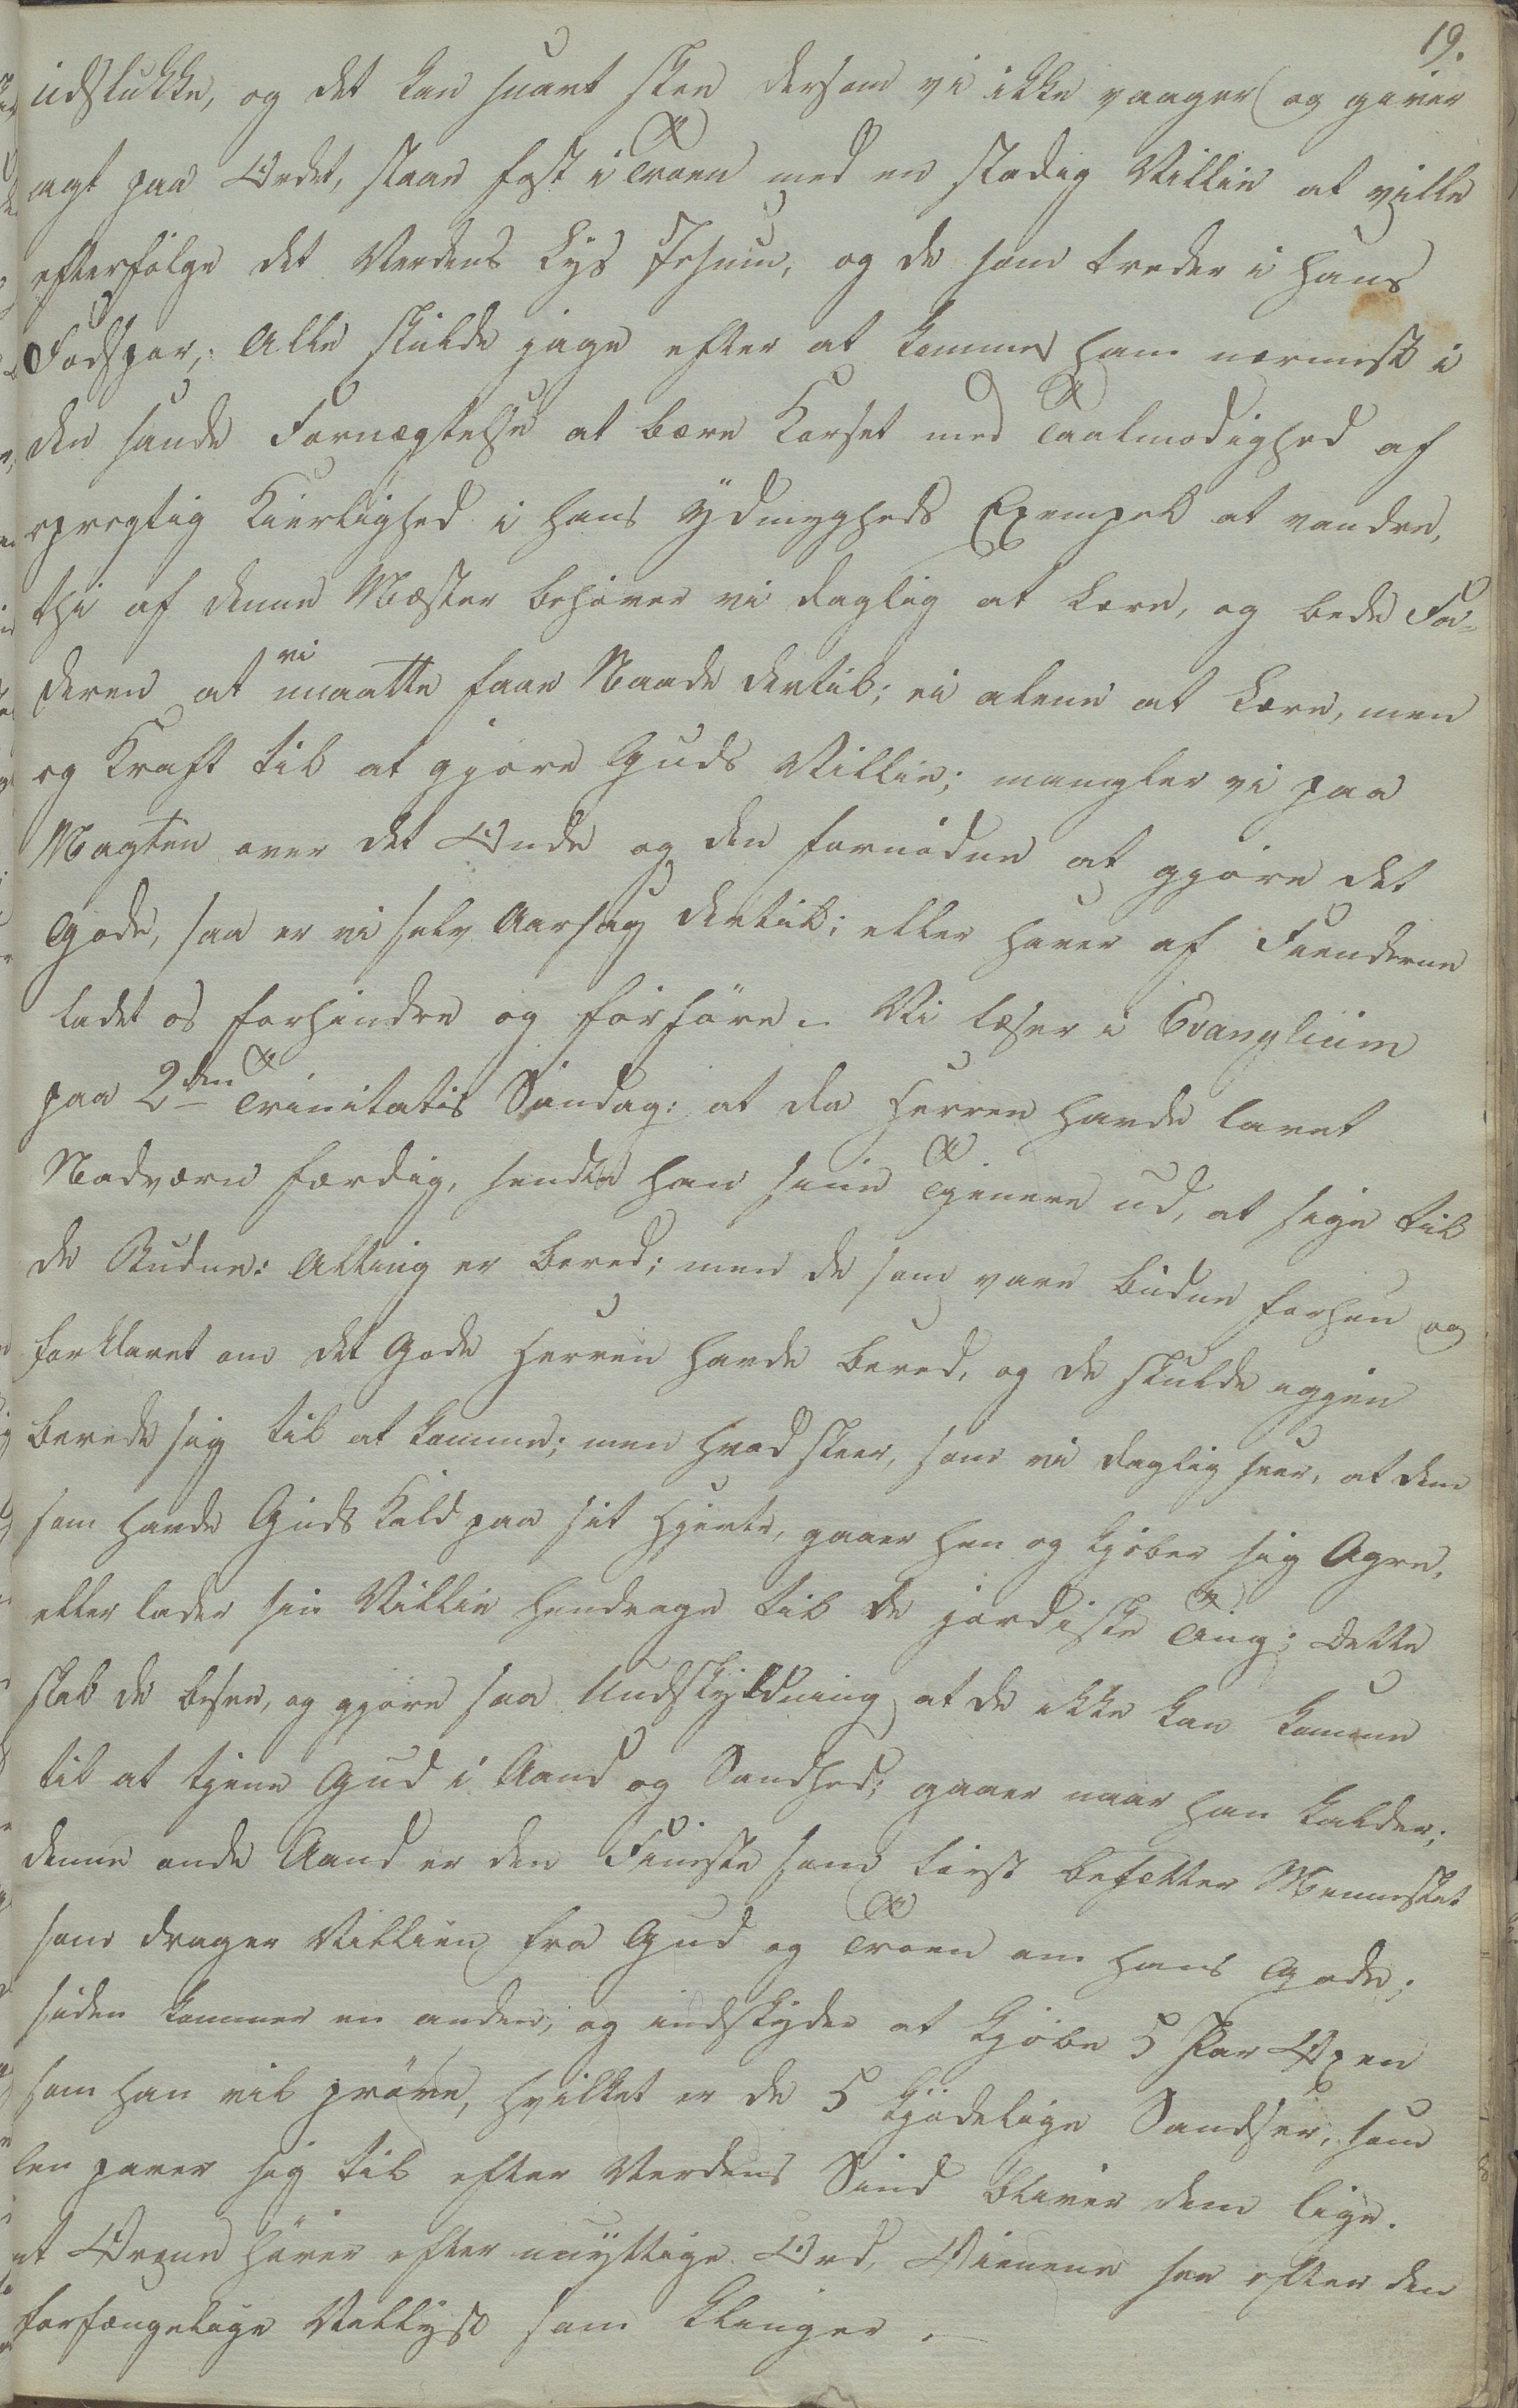 19.
udslukke, og det kan snart skee dersom vi ikke vaager og giver
agt paa Ordet, staae fast i Troen med en stadig Villie at ville
efterfølge det Verdens Lys Jesum, og de som treder i hans
Fodspor; Alle skulde jage efter at komme ham nærmest i
den sande Fornægtelse at bære Korset med Taalmodighed af
opregtig Kierlighed i hans Ydmygheds Exempel at vandre,
thi af denne Mæster behøver vi daglig at lære, og bede Fa-
deren at vi maatte faae Naade dertil; ei alene at lære, men
og Kraft til at gjøre Guds Villie; mangler vi paa
Magten over det Onde og den fornødne at gjøre det
Gode, saa er vi selv Aarsag dertil; eller haver af Fienderne
ladet os forhindre og forføre. Vi læser i Evanglium
paa 2den Trinitatis Søndag: at da Herren havde lavet
Nadvære færdig, sendte han sine Tjenere ud, at sige til
de Budne: Alting er bered; men de som vare budne forhen og
forklaret om det Gode Herren havde bered, og de skulde iggien
berede sig til at komme; men hvad skeer, som vi daglig seer, at den
som havde Guds Kald paa sit Hjerte, gaaer hen og kjøber sig Agre,
eller lader sin Villie hendrage til de jordiske Ting; dette
skal de besee, og gjøre saa Undskyldning at de ikke kan komme
til at tjene Gud i Aand og Sandhed; gaaer naar han kalder;
denne onde Aand er den Fineste som først besætter Mennesket
som drager Villien fra Gud og Troen om hans Gode;
siden kommer en anden, og indskyder at kjøbe 5 Par Oxen
som han vil prøve, hvilket er de 5 kjødelige Sandser, som
len parer sig til efter Verdens Sind bliver dem lige.
at Ørene hører efter unyttige Ord, Øienene see efter den
forfængelige Vellyst som klinger.